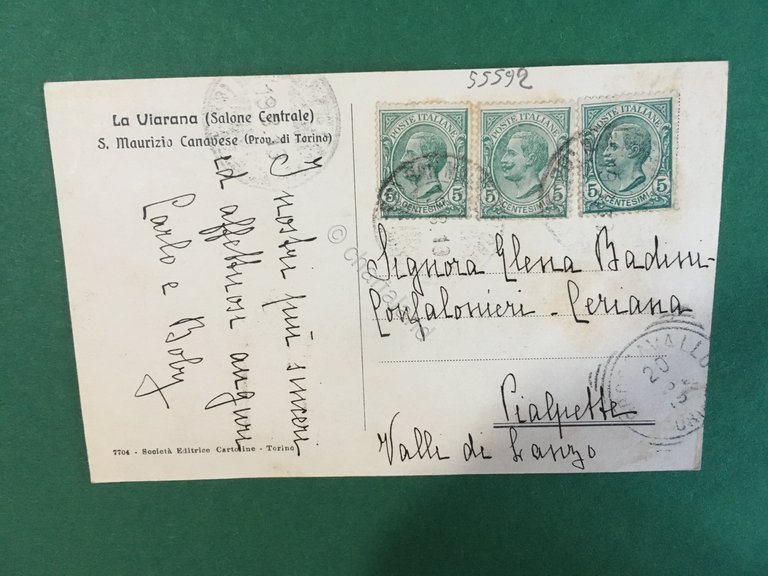 55592
La Viarana (Salone Centrale)
S. Maurizio Canavese (Prov. di Torino)
POSTE ITALIANE
5 CENTESIMI 5
POSTE ITALIANE
5 CENTESIMI 5
POSTE ITALIANE
5 CENTESIMI 5
I nostri più sinceri
ed affettuosi auguri
Carlo e Boby
Signora Elena Badini-
Confalonieri - Ceriana
Pialpetta
Valli di Lanzo
7704 - Società Editrice Cartoline - Torino